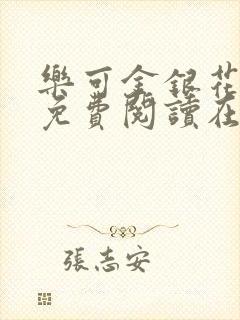 樂可金銀花
免費閱讀在
張志安